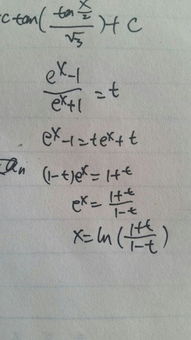 ctan(tan x/2 / √3) + C
e^x-1 / e^x+1 = t
e^x-1=te^x+t
(1-t)e^x=1+t
e^x = 1+t / 1-t
x=ln(1+t / 1-t)